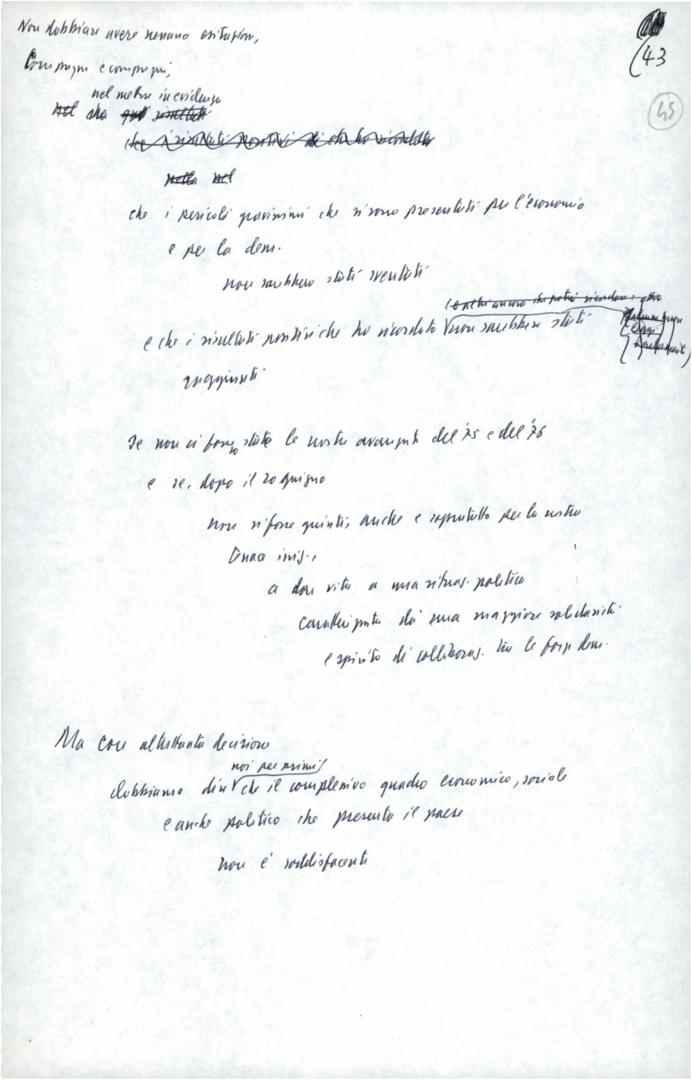 43
45
Non dobbiamo avere nessuna esitazione,
Compagne e compagni,
nel mettere in evidenza
che i pericoli gravissimi che si sono presentati per l'economia
e per la dem.
non sarebbero stati sventati
e che i risultati positivi che ho ricordato non sarebbero stati
raggiunti
se non ci fossero state le nostre avanzate del '75 e del '76
e se, dopo il 20 giugno
non si fosse giunti, anche e soprattutto per la nostra
tenace iniz.,
a dar vita a una situaz. politica
caratterizzata da una maggiore solidarietà
e spirito di collaboraz. tra le forze dem.
Ma con altrettanta decisione
noi per primi
dobbiamo dire che il complessivo quadro economico, sociale
e anche politico che presenta il paese
non è soddisfacente